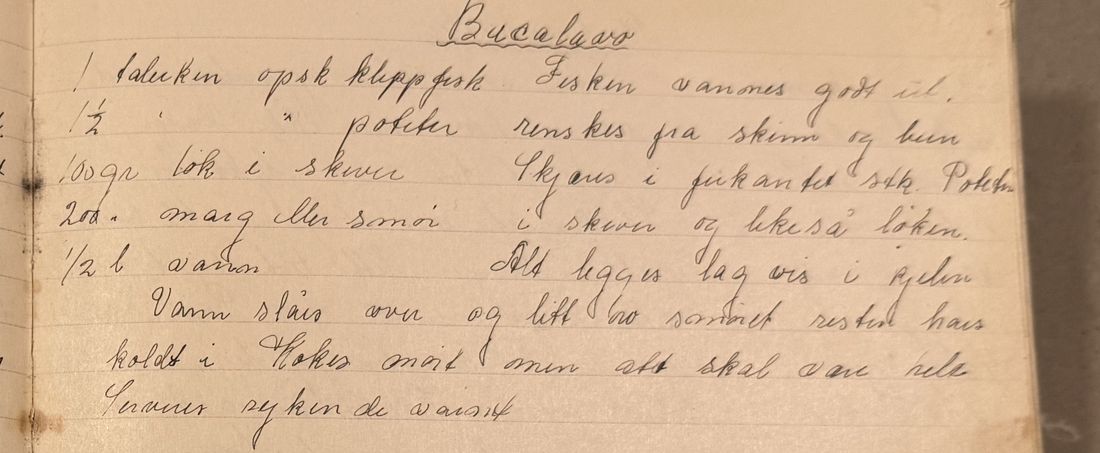 Bacalavo
1 talerken opsk klippfisk. Fisken vannes godt ut.
1½ " " poteter renskes fra skinn og ben
100gr løk i skiver Skjæres i firkantet stk. Poteten
200 " marg eller smør i skiver og likeså løken.
1/2 l vann Alt legges lag vis i kjelen
Vann slåes over og litt av smøret resten haes
koldt i Kokes mørt men alt skal være helt
Serveres rykende varmt